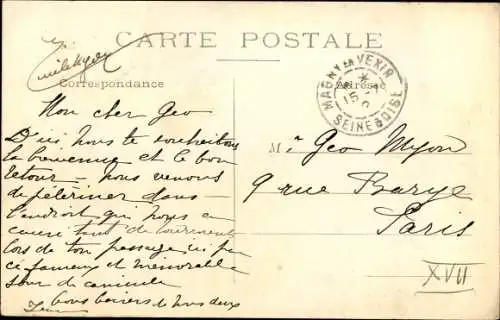 CARTE POSTALE
Correspondance
Adresse
MAGNY EN VEXIN
15
SEINE & OISE
Mon cher Geo
D'ici nous te souhaitons
la bienvenue et le bon
retour – nous venons
de pélériner dans
l'endroit qui nous a
causé tant de tourments
lors de ton passage ici par
ce fameux et mémorable
jour de canicule
Bons baisers de nous deux
Mr Geo Myon
9 rue Barye
Paris
XVII